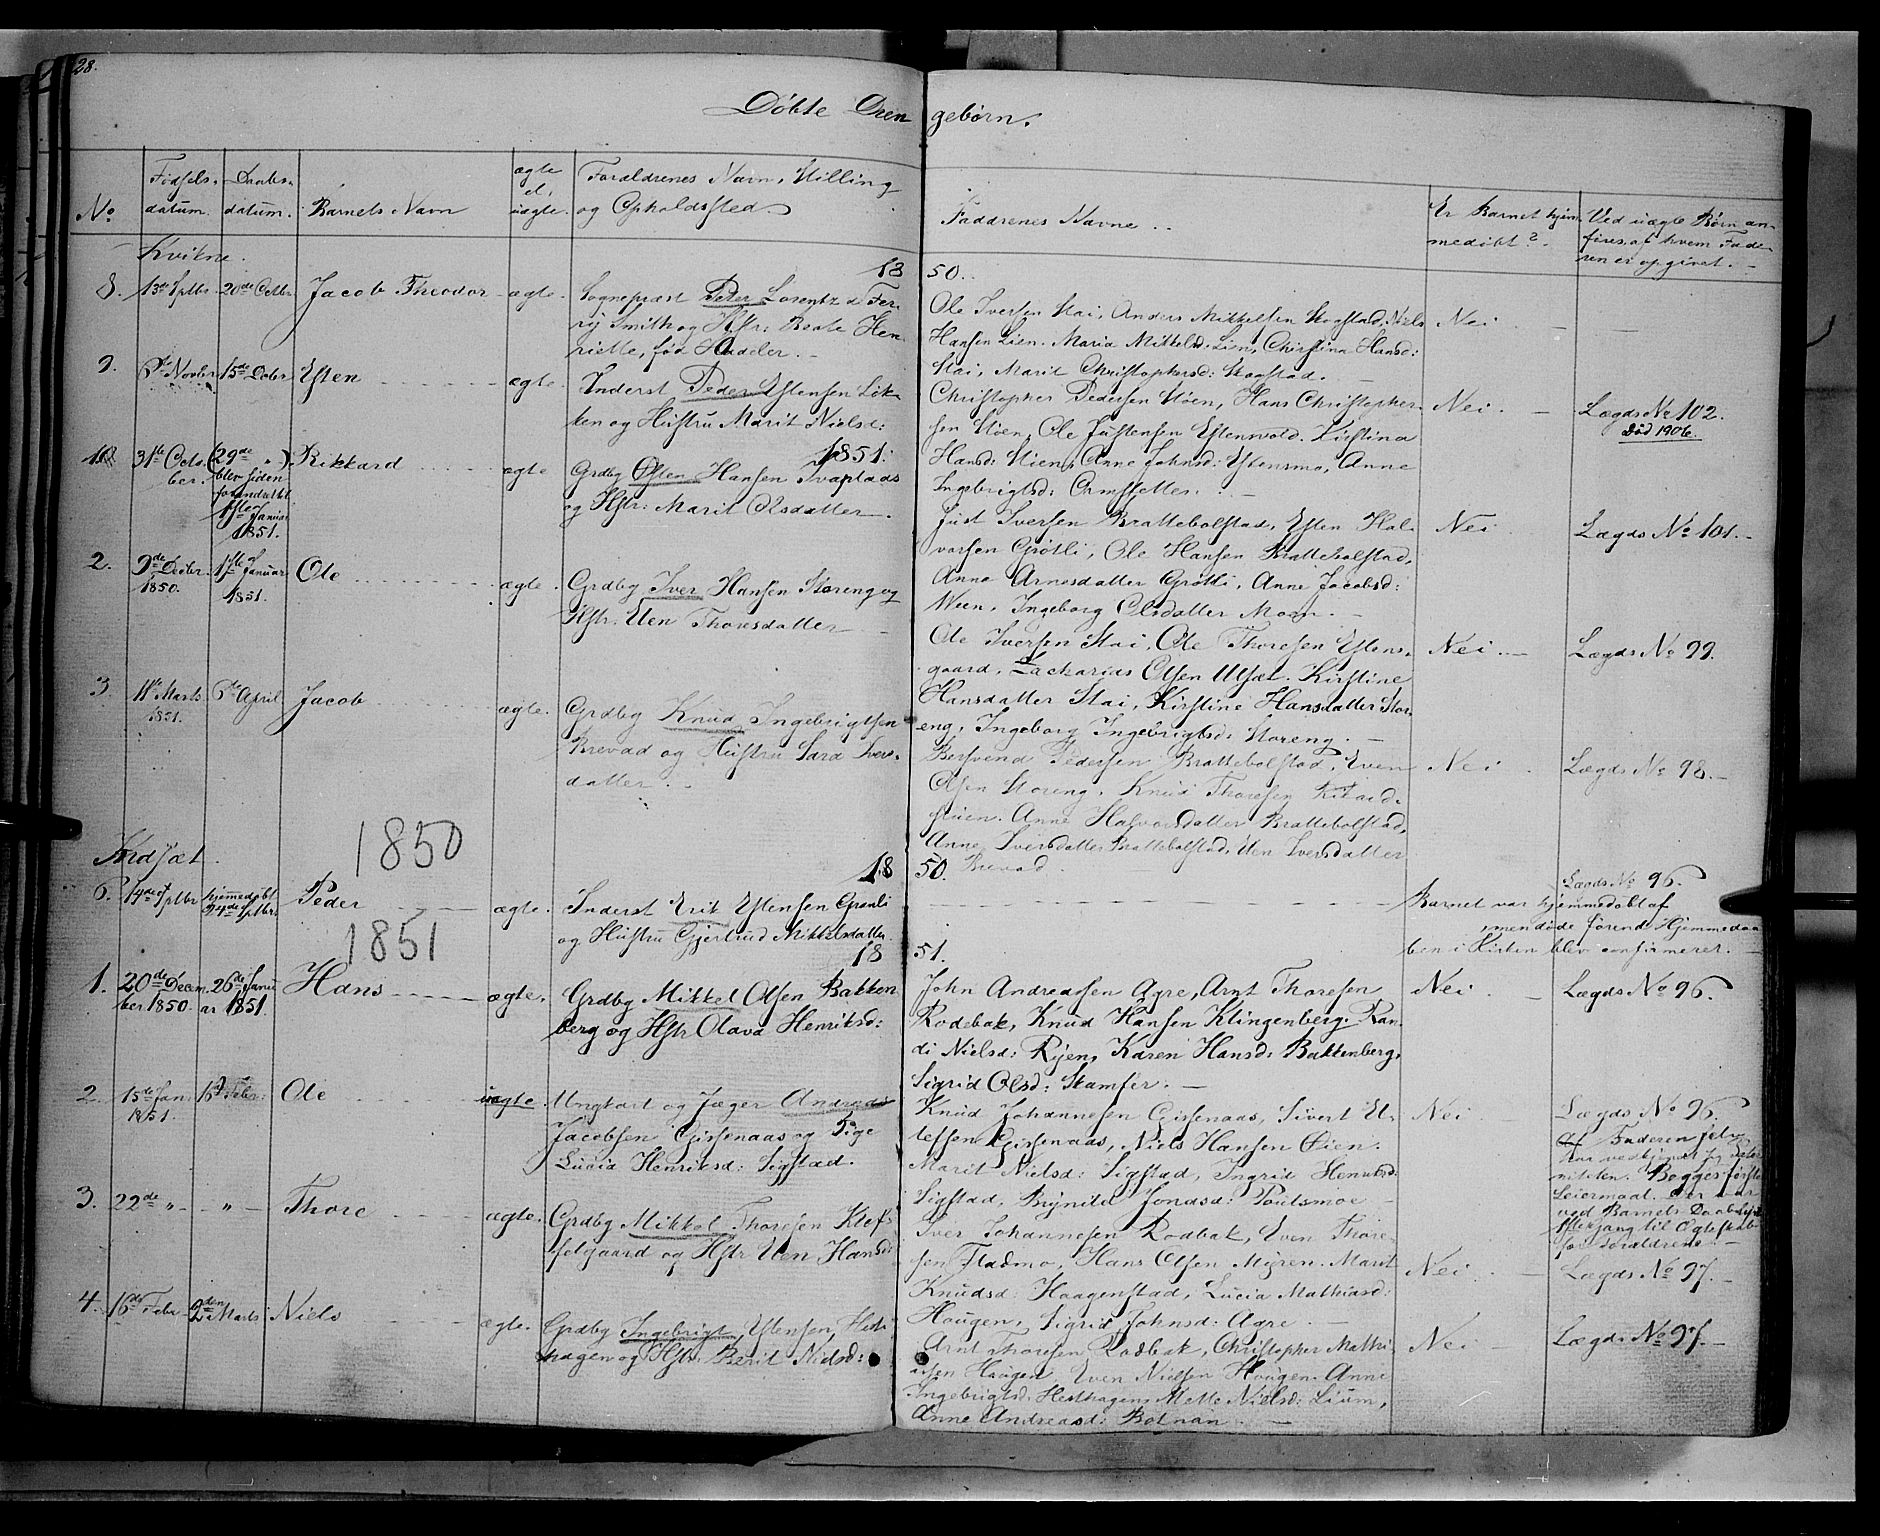 28.
Döbte Drengebørn.
No
Fødsels-
datum.
Daabs-
datum.
Barnets Navn
ægte
el.
uægte.
Forældrenes Navn, Stilling
og Opholdssted.
Faddrenes Navne
Er Barnet hjem-
medöbt?
Ved uægte Børn an-
føres, af hvem Fade-
ren er opgivet.
Kvikne.
1850.
8. 13de Sptbr 20de Octbr Jacob Theodor ægte. Sognepræst Peter Lorentz d Fer-
ry Smith og Hstr: Beate Hen-
riette, fød Hadeler.
Ole Iversen Stai, Anders Mikkelsen Skogstad, Niels
Hansen Lien. Maria Mikkelsd: Lien, Christina Hansd:
Stai, Marit Christophersd: Skogstad.
Nei
9. Novbr 15de Decbr Esten ægte. Inderst Peder Estensen Løk-
ken og Hustru Marit Nielsd:
Christopher Pedersen Støen, Hans Christopher-
sen Støen, Ole Justensen Estenvold. Kirstina
Hansd: Støen, Anne Johnsd: Estensmo, Anne
Ingebrigtsd: Ormsetter.
Nei. Lægds No 102.
Död 1906.
1851.
31te Octo-
ber.
(29de ")
blev siden
forandret til
1ste Januar
1851.
Rikkard ægte Grdbg Østen Hansen Tvaplads
og Hstr: Marit Olsdatter.
Just Iversen Brattebolstad, Esten Hal-
vorsen Grötli, Ole Hansen Brattebolstad,
Anne Arnesdatter Grötli, Anne Jacobsd:
Ween, Ingeborg Olsdatter Moen.
Nei Lægds No 101.
2. 9de Decbr.
1850.
1ste Januar
1851.
Ole ægte. Grdbg Iver Hansen Storeng og
Hstr. Elen Thoresdatter
Ole Iversen Stai, Ole Thoresen Estens-
gaard, Zacharias Olsen Ulset. Kirstine
Hansdatter Stai, Kirstine Hansdatter Stor-
eng, Ingeborg Ingebrigtsd: Storeng.
Nei. Lægds No 99.
3. 11te Marts
1851.
6te April Jacob ægte. Grdbg Knud Ingebrigtsen
Brevad og Hustru Sara Iver-
datter.
Bersvend Pedersen Brattebolstad, Even
Olsen Storeng, Knud Thoresen
Anne Halvorsdatter Brattebolstad,
Anne Iversdatter Brattebolstad, Elen Iversdatter
Brevad.
Nei Lægds No 98.
1850
Indset.
1850.
6. 14de Sptbr hjemmedöbt
24de Sptbr: Peder ægte. Inderst Erik Estensen Grönli
og Hustru Gjertrud Mikkelsdatter
Lægds No 96.
Barnet var hjemmedöbt af
men døde förend Hjemmedaa-
ben i Kirken blev confirmeret.
1851
1851.
1. 20de Decem-
ber 1850.
26de Janu-
ar 1851.
Hans ægte. Grdbg Mikkel Olsen Bakken
berg og Hstr Olava Henriksd:
John Andreassen Agre, Arnt Thoresen
Rodebak, Knud Hansen Klingenberg. Ran-
di Nielsd: Ryen, Karen Hansd: Bakkenberg,
Sigrid Olsd: Stamfer.
Nei. Lægds No 96.
2. 15de Jan.
1851.
16de Febr: Ole uægte. Ungkarl og Jæger Andreas
Jacobsen Girsenaas og Pige
Lucia Henriksd: Sigstad.
Knud Johannesen Girsenaas, Sivert El-
lefsen Girsenaas, Niels Hansen Øien.
Marit Nielsd: Sigstad, Ingrid Henriksd:
Sigstad, Brynild Jonasd: Poulsmoe
Nei Lægds No 96.
Faderen selv
har vedkjendt sig Pater-
niteten. Begges første
Leiermaal. Der var
ved Barnets Daab lyst
til Ægteskab
for Forældrene.
3. 22de " " Thore ægte. Grdbg Mikkel Thoresen Klef-
felgaard og Hstr Elen Hansd:
Iver Johannesen Rodbak, Even Thore-
sen Fladmo, Hans Olsen Myren. Marit
Knudsd: Haagenstad, Lucia Mathiasd:
Hougen, Sigrid Johnsd: Agre.
Nei Lægds No 97.
4. 16de Febr 2den Marts Niels ægte. Grdbg Ingebrigt Estensen Hest-
hagen og Hstr Berit Nielsd:
Arnt Thoresen Rodbak, Christopher Mathi-
asen Haugen, Even Nielsen Hougen. Anne
Ingebrigtsd: Hesthagen, Mette Nielsd: Lium,
Anne Andreasd: Botnan.
Nei Lægds No 97.